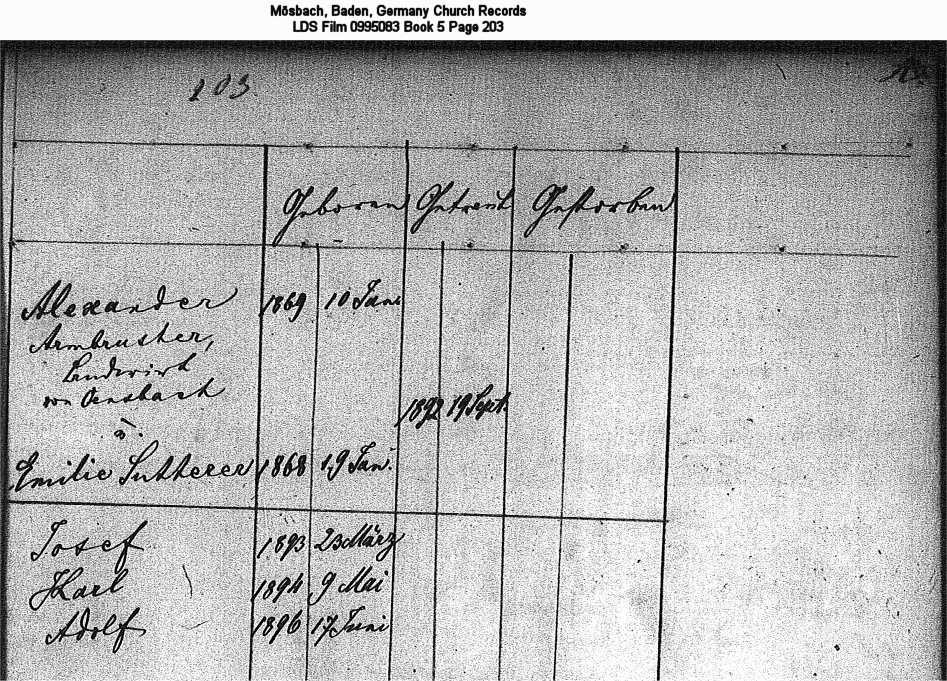 Mösbach, Baden, Germany Church Records
LDS Film 0995083 Book 5 Page 203
103
Geboren Getraut Gestorben
Alexander 1869 10 Juni
Armbruster,
Landwirt
von Oensbach
1892 19 Sept.
u.
Emilie Sutterer 1868 19 Jan.
Josef 1893 23 März
Karl 1894 9 Mai
Adolf 1896 17 Juni